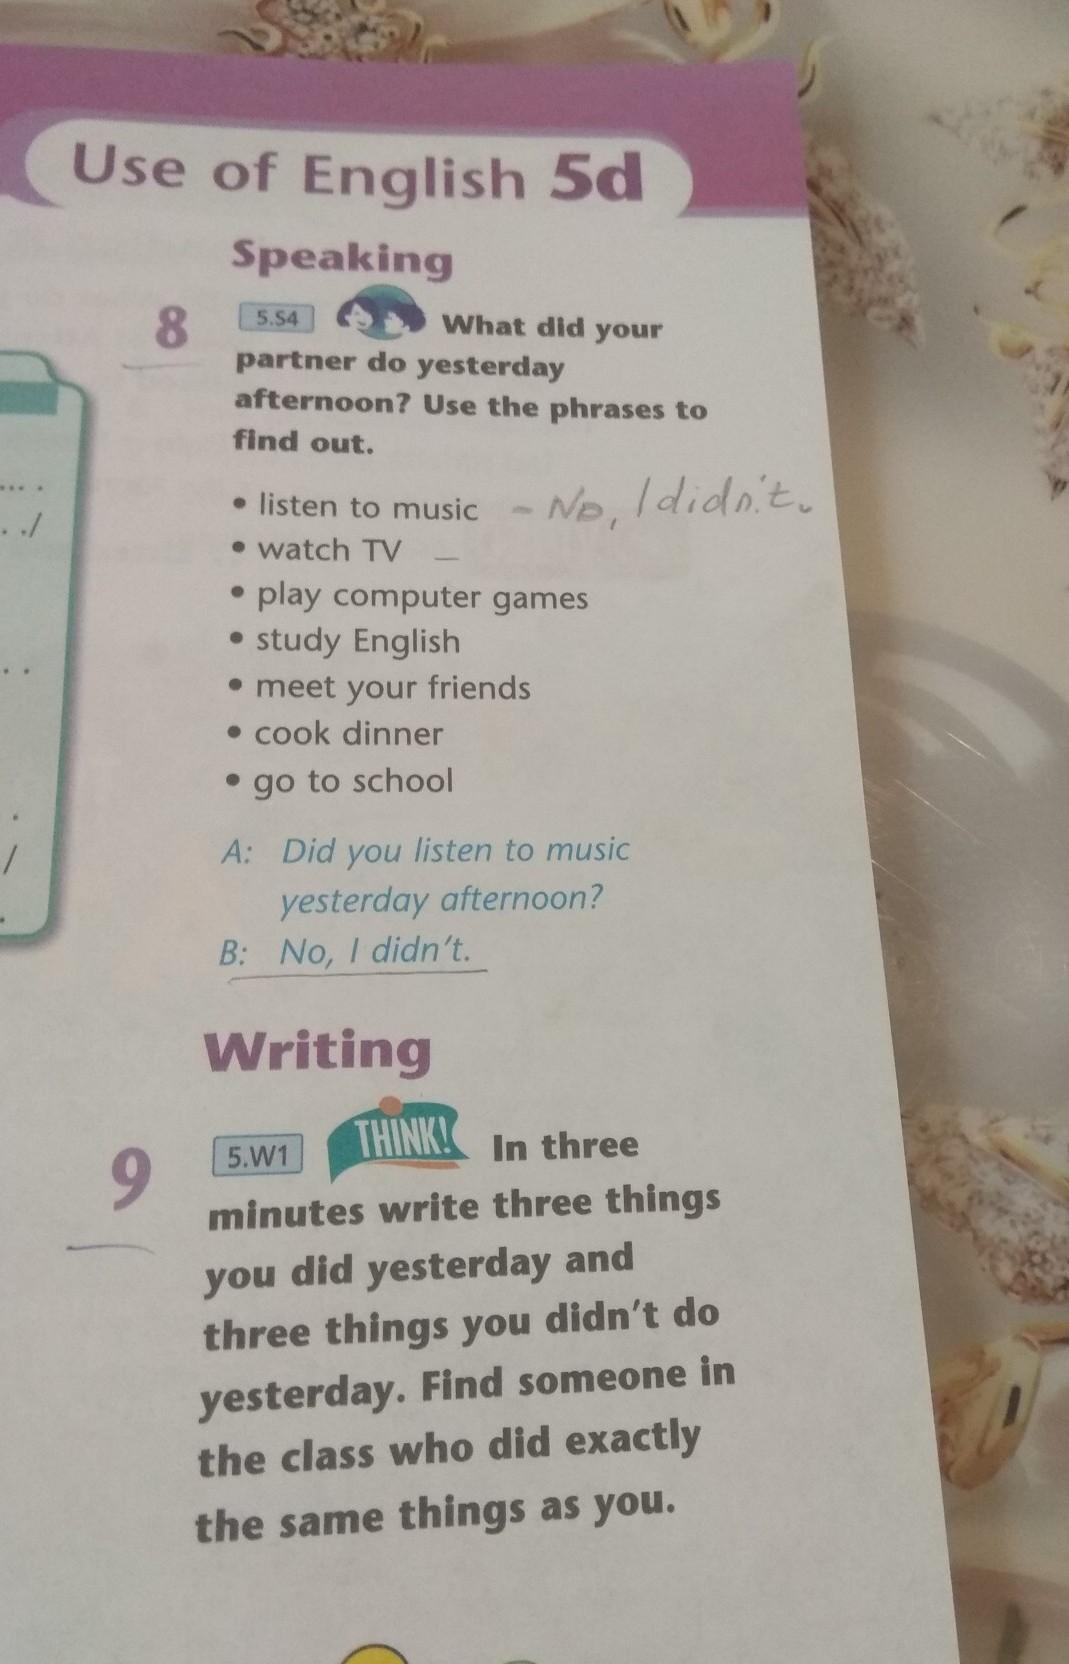 Use of English 5d
Speaking
8 5.S4 What did your
partner do yesterday
afternoon? Use the phrases to
find out.
• listen to music - No, I didn't.
• watch TV –
• play computer games
• study English
• meet your friends
• cook dinner
• go to school
A: Did you listen to music
yesterday afternoon?
B: No, I didn't.
Writing
9 5.W1 THINK! In three
minutes write three things
you did yesterday and
three things you didn't do
yesterday. Find someone in
the class who did exactly
the same things as you.